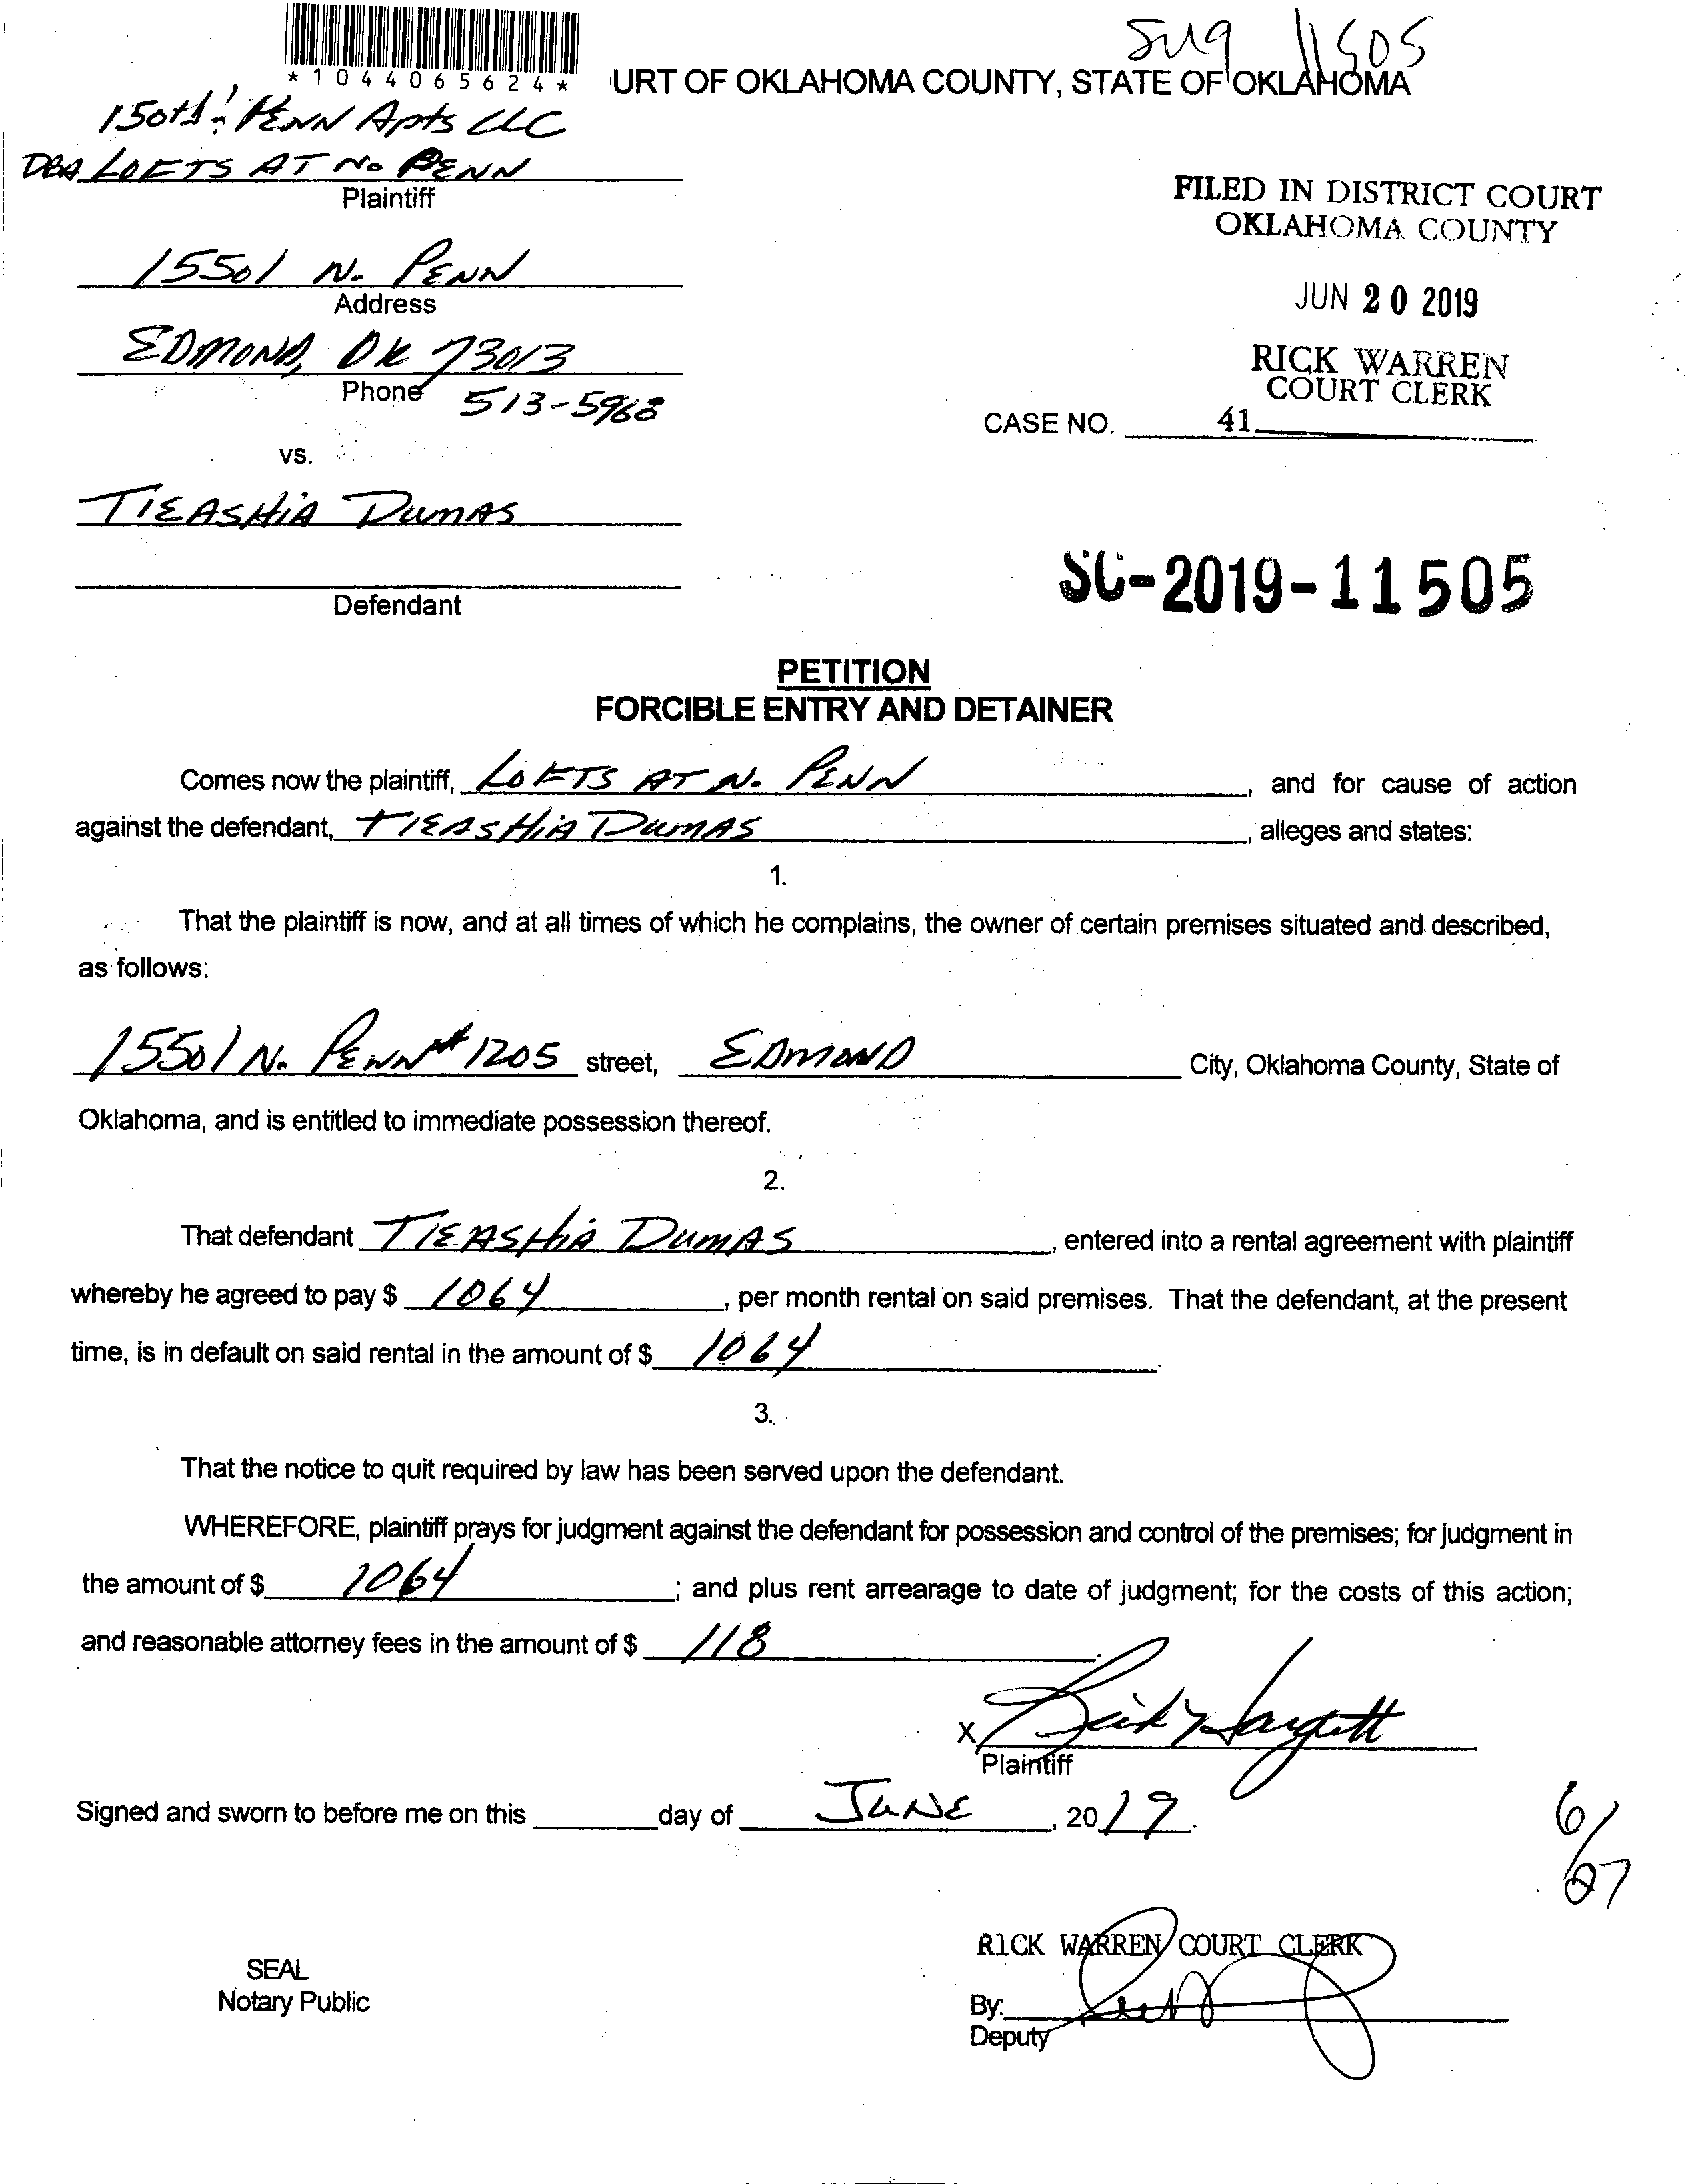 *1044065624*
URT OF OKLAHOMA COUNTY, STATE OF OKLAHOMA
11505
150th & PENN Apts LLC
DBA LOFTS AT No PENN
Plaintiff
FILED IN DISTRICT COURT
OKLAHOMA COUNTY
15501 N. PENN
Address
JUN 20 2019
EDMOND, OK 73013
Phone 513-5968
RICK WARREN
COURT CLERK
CASE NO. 41
vs.
TIEASHIA DUMAS
Defendant
SC-2019-11505
PETITION
FORCIBLE ENTRY AND DETAINER
Comes now the plaintiff, LOFTS AT N. PENN, and for cause of action
against the defendant, TIEASHIA DUMAS, alleges and states:
1.
That the plaintiff is now, and at all times of which he complains, the owner of certain premises situated and described,
as follows:
15501 N. PENN #1205 street, EDMOND City, Oklahoma County, State of
Oklahoma, and is entitled to immediate possession thereof.
2.
That defendant TIEASHIA DUMAS, entered into a rental agreement with plaintiff
whereby he agreed to pay $ 1064, per month rental on said premises. That the defendant, at the present
time, is in default on said rental in the amount of $ 1064.
3.
That the notice to quit required by law has been served upon the defendant.
WHEREFORE, plaintiff prays for judgment against the defendant for possession and control of the premises; for judgment in
the amount of $ 1064; and plus rent arrearage to date of judgment; for the costs of this action;
and reasonable attorney fees in the amount of $ 118.
X
Plaintiff
Signed and sworn to before me on this day of JUNE, 2019.
6/27
RICK WARREN COURT CLERK
SEAL
Notary Public
By:
Deputy